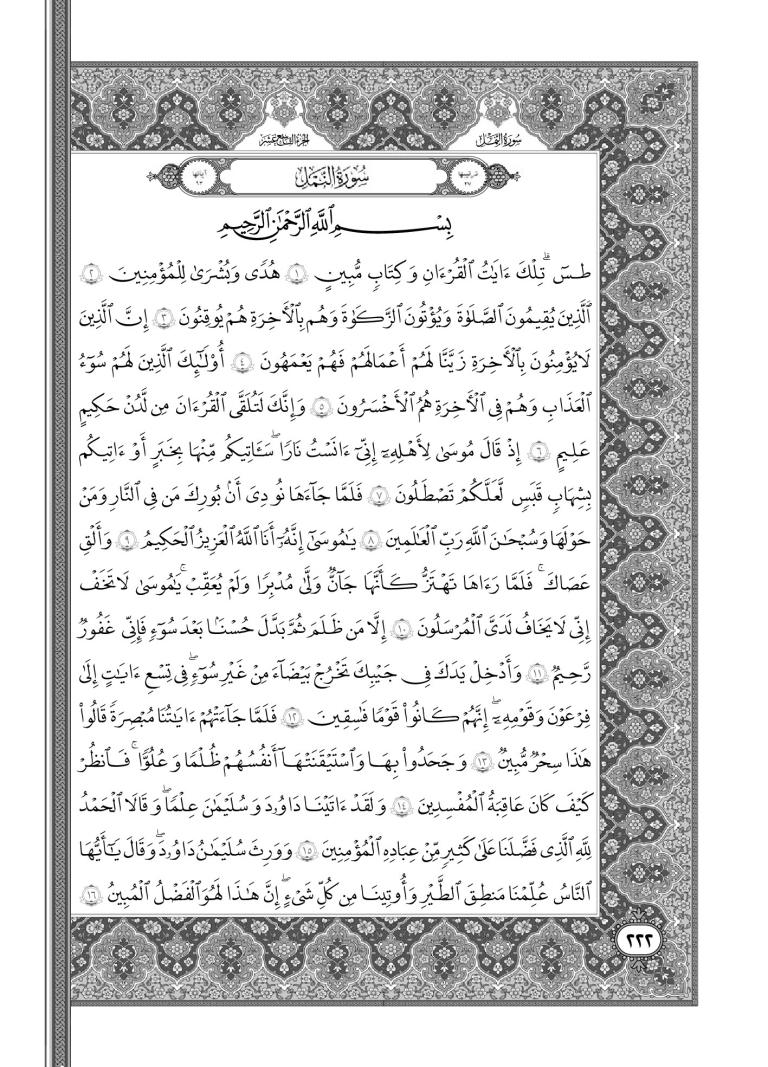 سُورَةُ النَّمْل
الجزءالتاسع عشر
ترتيبها ٢٧
سُورَةُ النَّمْلِ
آياتها ٩٣
بِسْمِ ٱللَّهِ ٱلرَّحْمَٰنِ ٱلرَّحِيمِ
طسٓ ۚ تِلْكَ ءَايَٰتُ ٱلْقُرْءَانِ وَكِتَابٍ مُّبِينٍ ۝١ هُدًى وَبُشْرَىٰ لِلْمُؤْمِنِينَ ۝٢
ٱلَّذِينَ يُقِيمُونَ ٱلصَّلَوٰةَ وَيُؤْتُونَ ٱلزَّكَوٰةَ وَهُم بِٱلْأَخِرَةِ هُمْ يُوقِنُونَ ۝٣ إِنَّ ٱلَّذِينَ
لَا يُؤْمِنُونَ بِٱلْأَخِرَةِ زَيَّنَّا لَهُمْ أَعْمَالَهُمْ فَهُمْ يَعْمَهُونَ ۝٤ أُوْلَٰٓئِكَ ٱلَّذِينَ لَهُمْ سُوٓءُ
ٱلْعَذَابِ وَهُمْ فِي ٱلْأَخِرَةِ هُمُ ٱلْأَخْسَرُونَ ۝٥ وَإِنَّكَ لَتُلَقَّى ٱلْقُرْءَانَ مِن لَّدُنْ حَكِيمٍ
عَلِيمٍ ۝٦ إِذْ قَالَ مُوسَىٰ لِأَهْلِهِۦٓ إِنِّيٓ ءَانَسْتُ نَارًا ۖ سَـَٔاتِيكُم مِّنْهَا بِخَبَرٍ أَوْ ءَاتِيكُم
بِشِهَابٍ قَبَسٍ لَّعَلَّكُمْ تَصْطَلُونَ ۝٧ فَلَمَّا جَآءَهَا نُودِيَ أَنۢ بُورِكَ مَن فِي ٱلنَّارِ وَمَنْ
حَوْلَهَا وَسُبْحَٰنَ ٱللَّهِ رَبِّ ٱلْعَٰلَمِينَ ۝٨ يَٰمُوسَىٰٓ إِنَّهُۥٓ أَنَا ٱللَّهُ ٱلْعَزِيزُ ٱلْحَكِيمُ ۝٩ وَأَلْقِ
عَصَاكَ ۚ فَلَمَّا رَءَاهَا تَهْتَزُّ كَأَنَّهَا جَآنٌّ وَلَّىٰ مُدْبِرًا وَلَمْ يُعَقِّبْ ۚ يَٰمُوسَىٰ لَا تَخَفْ
إِنِّي لَا يَخَافُ لَدَيَّ ٱلْمُرْسَلُونَ ۝١٠ إِلَّا مَن ظَلَمَ ثُمَّ بَدَّلَ حُسْنَۢا بَعْدَ سُوٓءٍ فَإِنِّي غَفُورٌ
رَّحِيمٌ ۝١١ وَأَدْخِلْ يَدَكَ فِي جَيْبِكَ تَخْرُجْ بَيْضَآءَ مِنْ غَيْرِ سُوٓءٍ ۖ فِي تِسْعِ ءَايَٰتٍ إِلَىٰ
فِرْعَوْنَ وَقَوْمِهِۦٓ ۖ إِنَّهُمْ كَانُوا۟ قَوْمًا فَٰسِقِينَ ۝١٢ فَلَمَّا جَآءَتْهُمْ ءَايَٰتُنَا مُبْصِرَةً قَالُوا۟
هَٰذَا سِحْرٌ مُّبِينٌ ۝١٣ وَجَحَدُوا۟ بِهَا وَٱسْتَيْقَنَتْهَآ أَنفُسُهُمْ ظُلْمًا وَعُلُوًّا ۚ فَٱنظُرْ
كَيْفَ كَانَ عَاقِبَةُ ٱلْمُفْسِدِينَ ۝١٤ وَلَقَدْ ءَاتَيْنَا دَاوُۥدَ وَسُلَيْمَٰنَ عِلْمًا ۖ وَقَالَا ٱلْحَمْدُ
لِلَّهِ ٱلَّذِي فَضَّلَنَا عَلَىٰ كَثِيرٍ مِّنْ عِبَادِهِ ٱلْمُؤْمِنِينَ ۝١٥ وَوَرِثَ سُلَيْمَٰنُ دَاوُۥدَ ۖ وَقَالَ يَٰٓأَيُّهَا
ٱلنَّاسُ عُلِّمْنَا مَنطِقَ ٱلطَّيْرِ وَأُوتِينَا مِن كُلِّ شَيْءٍ ۖ إِنَّ هَٰذَا لَهُوَ ٱلْفَضْلُ ٱلْمُبِينُ ۝١٦
٢٢٢